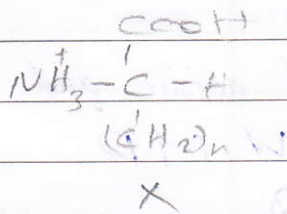 COOH
NH₃⁺ – C – H
(CH₂)n
X